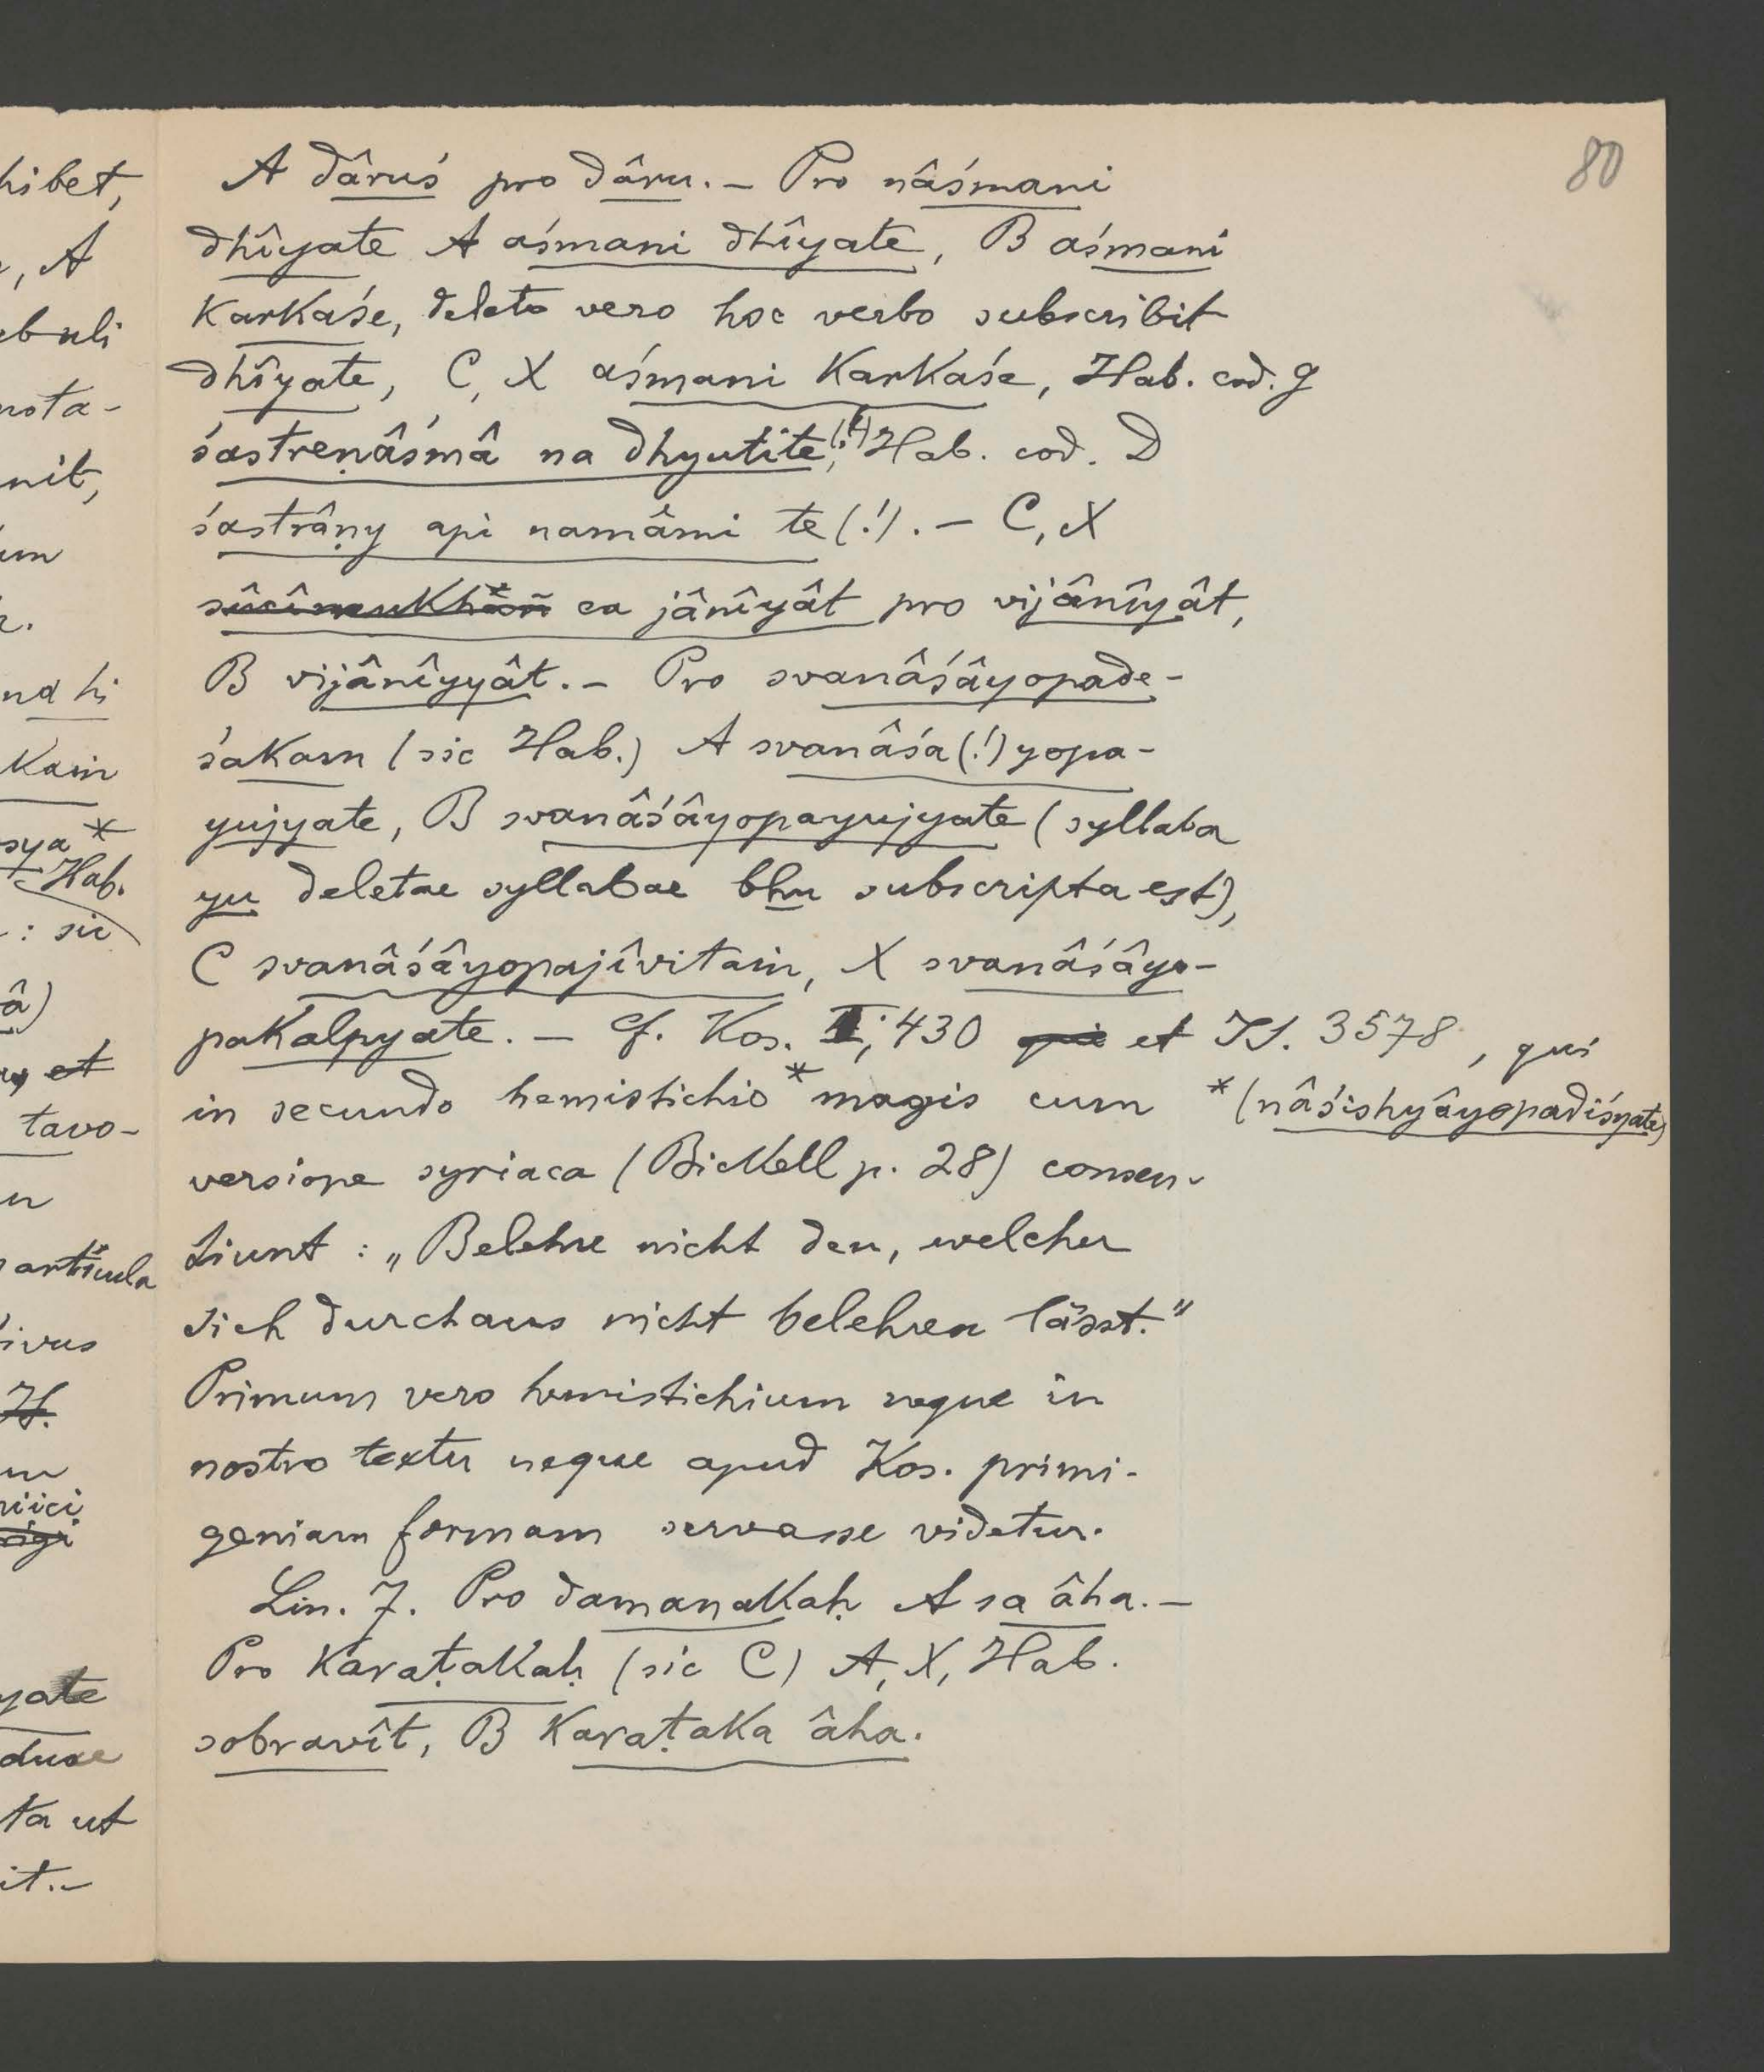 80
A dâruś pro dâru. – Pro nâśmani
dhîyate A aśmani dhîyate, B aśmani
karkaśe, deleto vero hoc verbo subscribit
dhîyate, C, X aśmani karkaśe, Hab. cod. g
śastreṇâśmâ na dhyutite (!), Hab. cod. D
śastrâṇy api namâmi te (!). – C, X
ca jânîyât pro vijânîyât,
B vijânîyyât. – Pro svanâśâyopade-
śakam (sic Hab.) A svanâśa(!)yopa-
yujyate, B svanâśâyopayujyate (syllaba
yu deletae syllabae bhu subscripta est),
C svanâśâyopajîvitaṁ, X svanâśâyo-
pakalpyate. – cf. Kos. I, 430 et IS. 3578, qui
in secundo hemistichio * magis cum
* (nâśishyâyopadiśyate)
versione syriaca (Bickell p. 28) consen-
tiunt: „Belehre nicht den, welcher
sich durchaus nicht belehren lässt."
Primum vero hemistichium neque in
nostro textu neque apud Kos. primi-
geniam formam servasse videtur.
Lin. 7. Pro damanakaḥ A sa âha. –
Pro karaṭakaḥ (sic C) A, X, Hab.
sobravît, B karaṭaka âha.
hibet,
, A
ebuli
nota-
nit,
um
na hi
kaṁ
sya *
Hab.
: sic
â)
et
tavo-
articula
ivus
H.
niici
yate
duae
ta ut
it. –